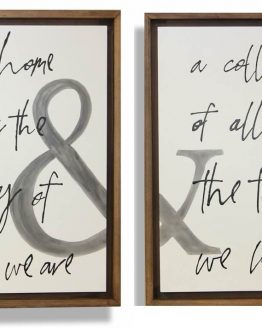 home
the
&
y of
we are
a coll
of all
the t
we